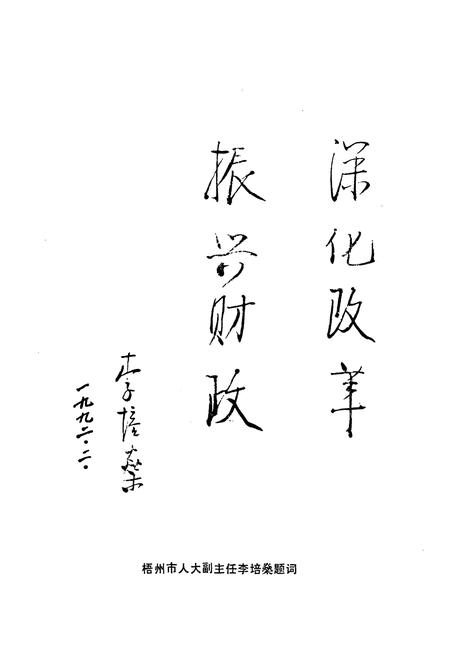 深化改革
振兴财政
李培燊
一九九二·二·
梧州市人大副主任李培燊题词